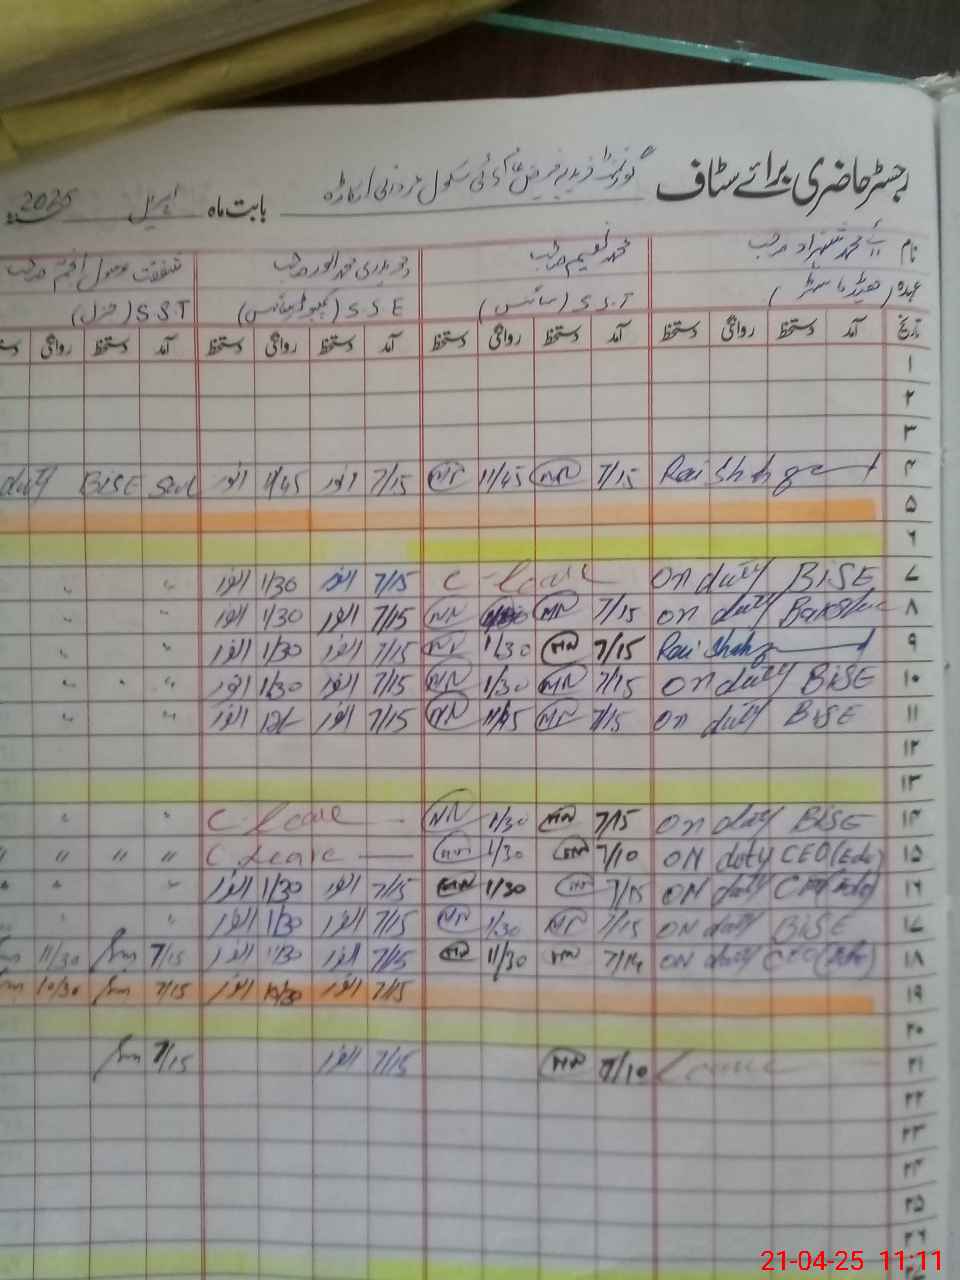 رجسٹر حاضری برائے سٹاف گورنمنٹ سکول اوکاڑہ بابت ماہ اپریل 2025
نام محمد شہزاد صاحب محمد نعیم صاحب چوہدری محمد انور صاحب شفقت رسول
عہدہ (ہیڈ ماسٹر) S.S.T (سائنس) S.S.E (کمپیوٹر سائنس) S.S.T (جنرل)
تاریخ آمد دستخط روانگی دستخط آمد دستخط روانگی دستخط آمد دستخط روانگی دستخط آمد دستخط روانگی
۱
۲
۳
۴ Rai Shahza 7/15 MN 11/45 MN 7/15 انور 11/45 انور BISE duty
۵
۶
۷ On duty BISE C-leave 7/15 انور 1/30 انور "
۸ On duty 7/15 MN MN 7/15 انور 1/30 انور "
۹ Rai Shahz 7/15 MN 1/30 MN 7/15 انور 1/30 انور "
۱۰ On duty BISE 7/15 MN 1/30 MN 7/15 انور 1/30 انور "
۱۱ On duty BISE 7/15 MN 11/45 MN 7/15 انور انور "
۱۲
۱۳
۱۴ On duty BISE 7/15 MN 1/30 MN C leave "
۱۵ ON duty CEO (Edu) 7/10 MN 1/30 MN C leave " " "
۱۶ ON duty CEO (Edu) 7/15 MN 1/30 MN 7/15 انور 1/30 انور "
۱۷ ON duty BISE 7/15 MN 1/30 MN 7/15 انور 1/30 انور "
۱۸ ON duty CEO (Edu) 7/14 MN 11/30 MN 7/15 انور 11/30 انور 7/15 11/30
۱۹ 7/15 انور 10/30 انور 7/15 10/30
۲۰
۲۱ Leave 7/10 MN 7/15 انور 7/15
۲۲
۲۳
۲۴
۲۵
۲۶
21-04-25 11:11